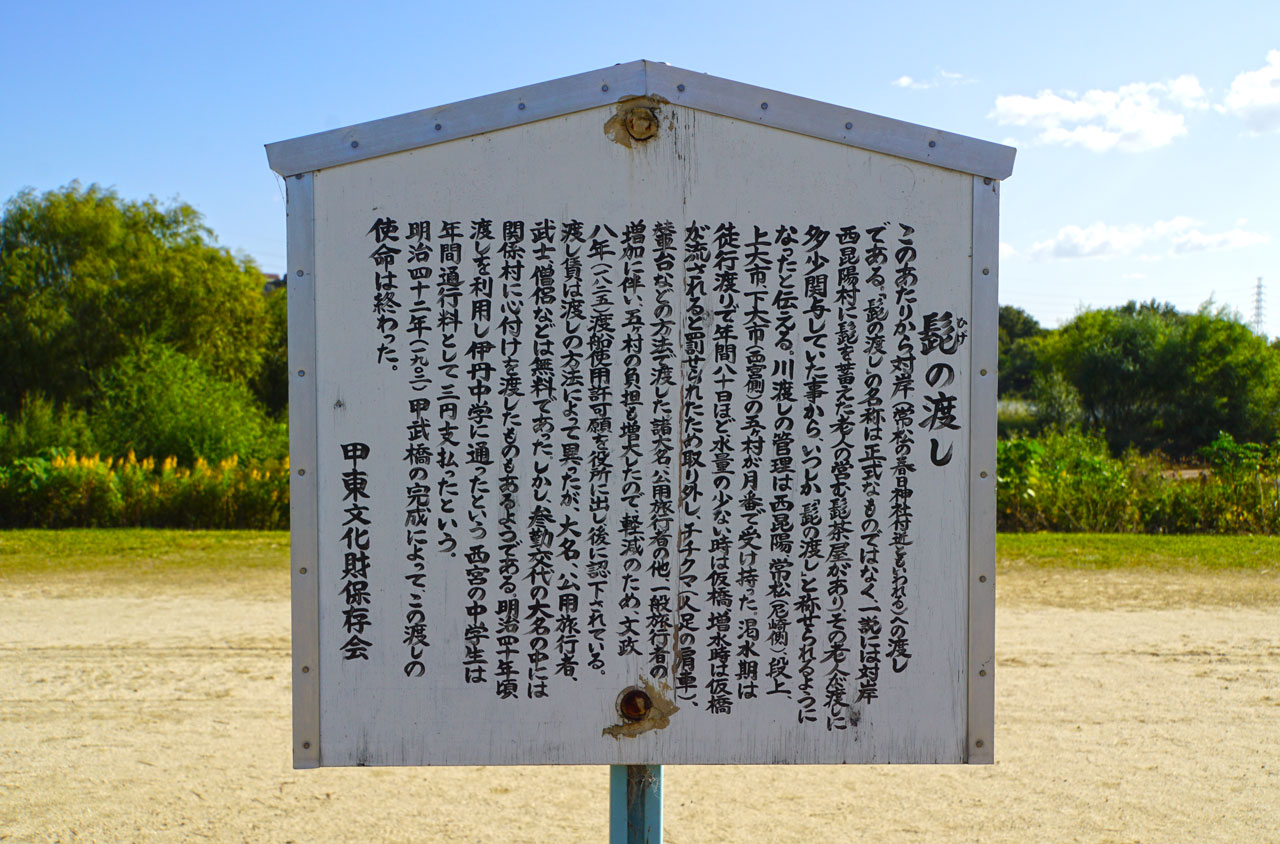 髭の渡し
ひげ
このあたりから対岸(常松の春日神社付近ともいわれる)への渡し
である。「髭の渡し」の名称は正式なものではなく、一説には対岸
西昆陽村に髭を蓄えた老人の営む髭茶屋があり、その老人が渡しに
多少関与していた事から、いつしか「髭の渡し」と称せられるように
なったと伝える。川渡しの管理は西昆陽、常松(尼崎側)段上、
上大市、下大市(西宮側)の五ヶ村が月番で受け持った。渇水期は
徒行渡りで年間八十日ほど、水量の少ない時は仮橋、増水時は仮橋
が流されると罰せられたため取り外し、チチクマ(人足の肩車)、
輦台などの方法で渡した。諸大名、公用旅行者の他、一般旅行者の
増加に伴い、五ヶ村の負担も増大したので、軽減のため、文政
八年(一八二五)渡船使用許可願を役所に出し後に認下されている。
渡し賃は渡しの方法によって異ったが、大名、公用旅行者、
武士、僧侶などは無料であった。しかし、参勤交代の大名の中には
関係村に心付けを渡したものもあるようである。明治四十年頃
渡しを利用し伊丹中学に通ったという西宮の中学生は
年間通行料として三円支払ったという。
明治四十二年(一九〇三)甲武橋の完成によって、この渡しの
使命は終わった。
甲東文化財保存会